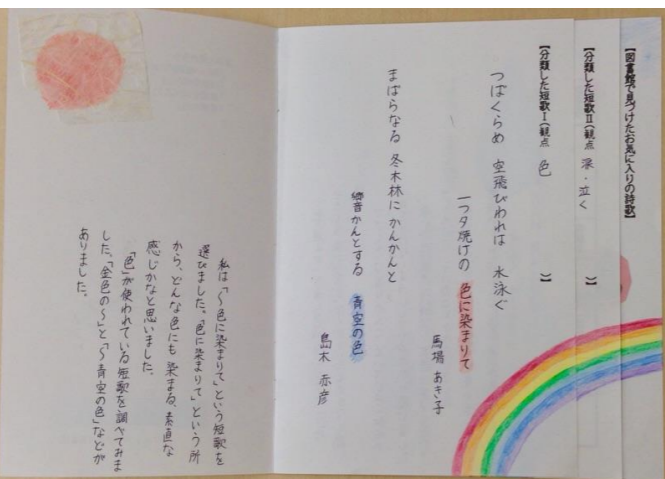 【図書館で見つけたお気に入りの詩歌】
【分類した短歌Ⅱ(観点 涙・泣く 】
【分類した短歌Ⅰ(観点 色 】
つばくらめ 空飛びわれは 水泳ぐ
一つ夕焼けの 色に染まりて
馬場 あき子
まばらなる 冬木林に かんかんと
響音かんとする 青空の色
島木 赤彦
私は「~色に染まりて」という短歌を
選びました。「色に染まりて」という所
から、どんな色にも 染まる、素直な
感じかなと思いました。
「色」が使われている短歌を調べてみま
した。「金色の~」と「~青空の色」などが
ありました。